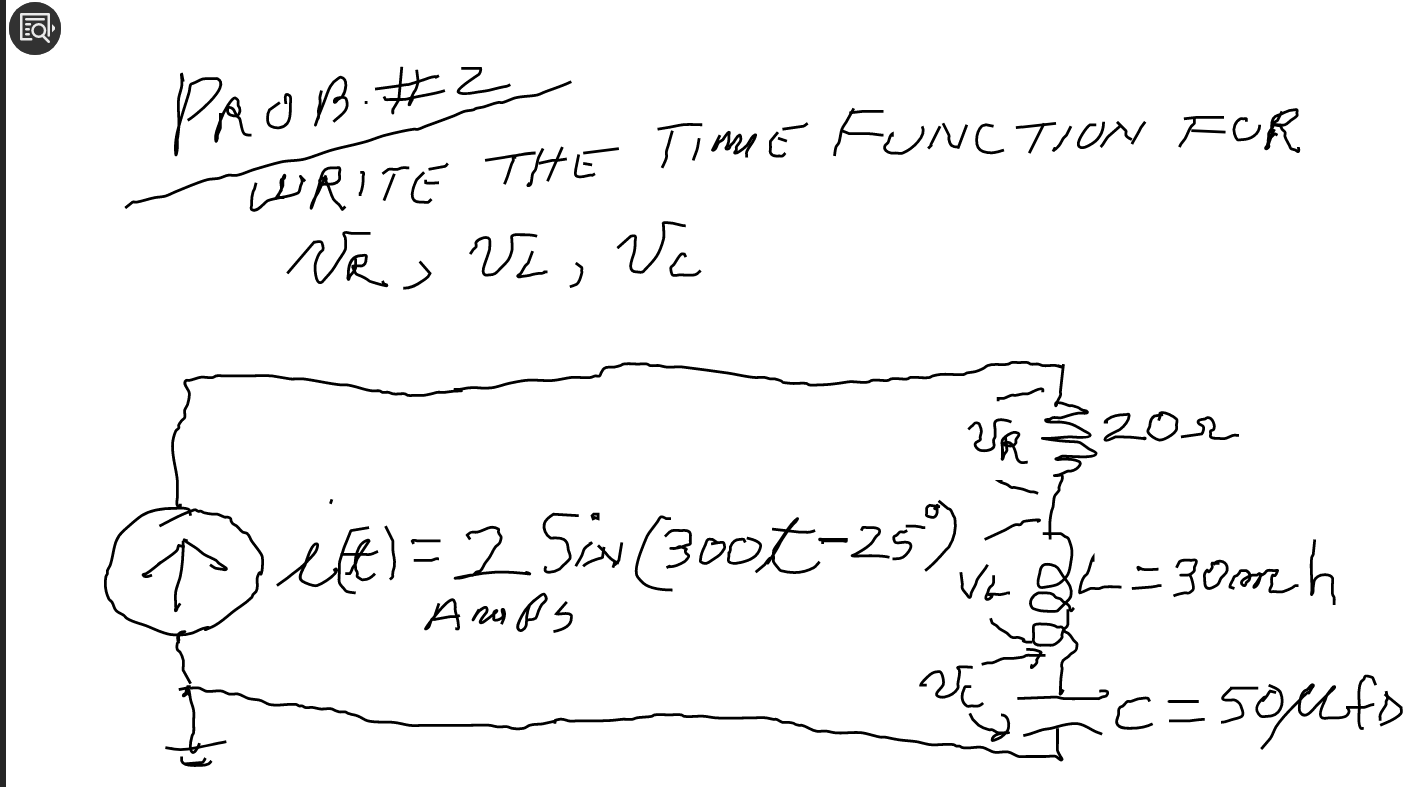 PROB. #2
WRITE THE TIME FUNCTION FOR
VR, VL, VC
VR 20Ω
i(t) = 2 Sin(300t-25°)
AMPS
VL L=30mh
VC C=50μfd